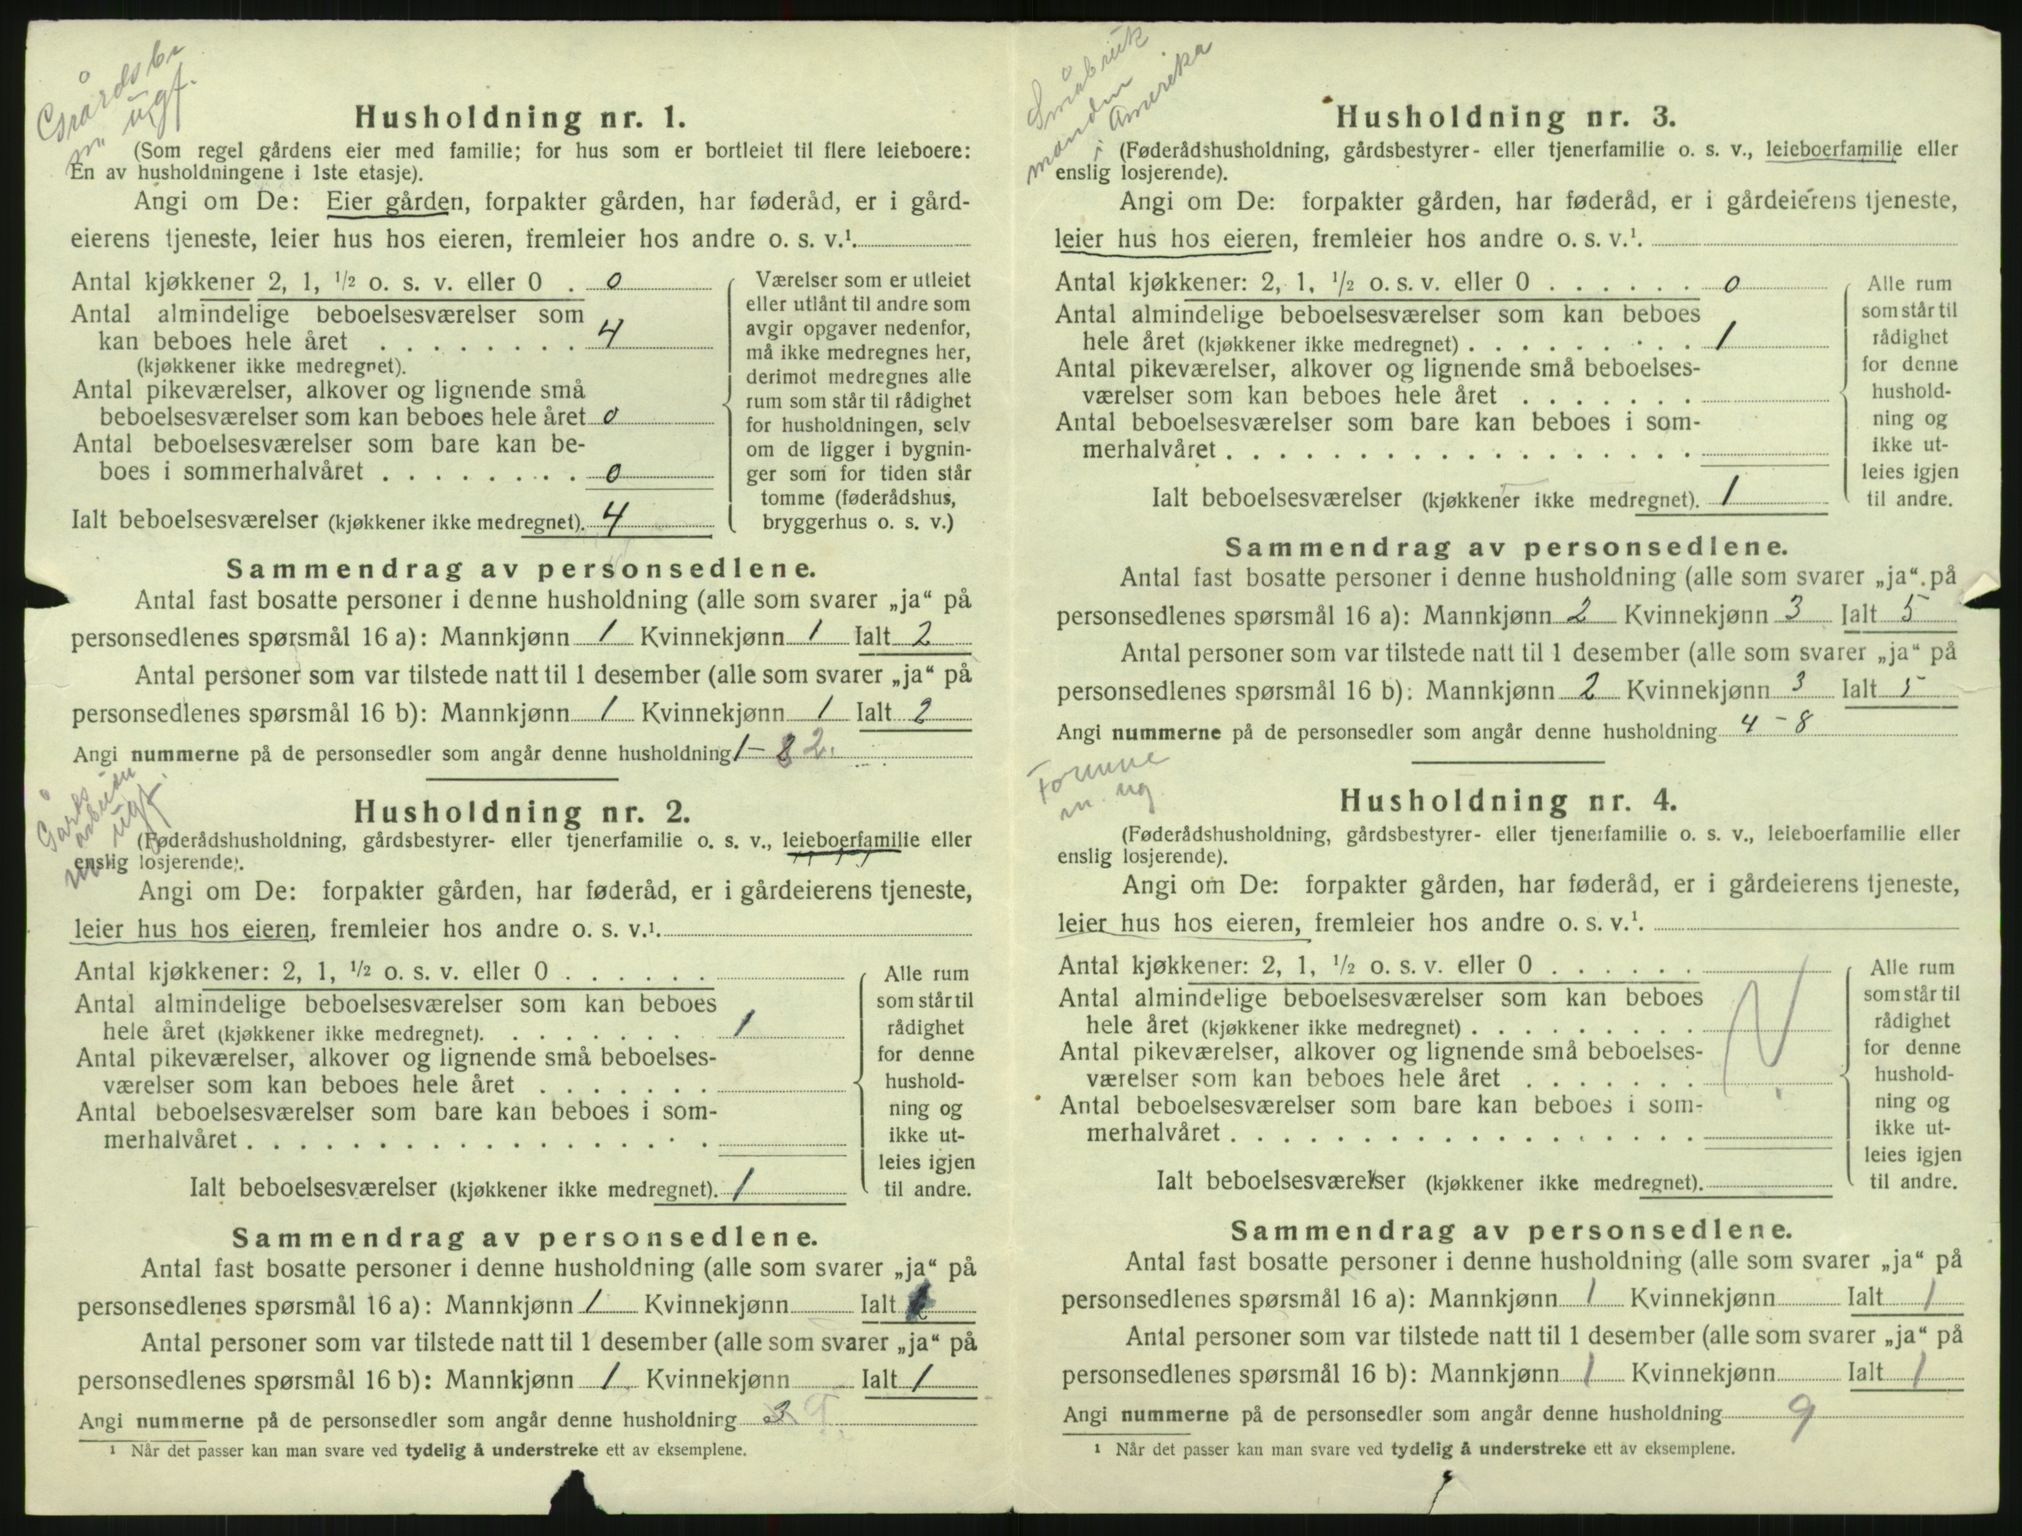 Gårdsbr
m ugf.
Husholdning nr. 1.
(Som regel gårdens eier med familie; for hus som er bortleiet til flere leieboere:
En av husholdningene i 1ste etasje).
Angi om De: Eier gården, forpakter gården, har føderåd, er i gård-
eierens tjeneste, leier hus hos eieren, fremleier hos andre o. s. v.¹.
Antal kjøkkener 2, 1, ½ o. s. v. eller 0 . 0
Antal almindelige beboelsesværelser som
kan beboes hele året . . . . . . . . 4
(kjøkkener ikke medregnet).
Antal pikeværelser, alkover og lignende små
beboelsesværelser som kan beboes hele året 0
Antal beboelsesværelser som bare kan be-
boes i sommerhalvåret . . . . . . . . 0
Ialt beboelsesværelser (kjøkkener ikke medregnet). 4
Værelser som er utleiet
eller utlånt til andre som
avgir opgaver nedenfor,
må ikke medregnes her,
derimot medregnes alle
rum som står til rådighet
for husholdningen, selv
om de ligger i bygnin-
ger som for tiden står
tomme (føderådshus,
bryggerhus o. s. v.)
Sammendrag av personsedlene.
Antal fast bosatte personer i denne husholdning (alle som svarer „ja“ på
personsedlenes spørsmål 16 a): Mannkjønn 1 Kvinnekjønn 1 Ialt 2
Antal personer som var tilstede natt til 1 desember (alle som svarer „ja“ på
personsedlenes spørsmål 16 b): Mannkjønn 1 Kvinnekjønn 1 Ialt 2
Angi nummerne på de personsedler som angår denne husholdning 1 - 8 2.
Gårds
arbeider
ugf.
Husholdning nr. 2.
(Føderådshusholdning, gårdsbestyrer- eller tjenerfamilie o. s. v., leieboerfamilie eller
enslig losjerende).
Angi om De: forpakter gården, har føderåd, er i gårdeierens tjeneste,
leier hus hos eieren, fremleier hos andre o. s. v.¹.
Antal kjøkkener: 2, 1, ½ o. s. v. eller 0 . . . . . .
Antal almindelige beboelsesværelser som kan beboes
hele året (kjøkkener ikke medregnet). . . . . . . . 1
Antal pikeværelser, alkover og lignende små beboelses-
værelser som kan beboes hele året . . . . . . .
Antal beboelsesværelser som bare kan beboes i som-
merhalvåret . . . . . . . . . . . . . . . . . .
Ialt beboelsesværelser (kjøkkener ikke medregnet). 1
Alle rum
som står til
rådighet
for denne
hushold-
ning og
ikke ut-
leies igjen
til andre.
Sammendrag av personsedlene.
Antal fast bosatte personer i denne husholdning (alle som svarer „ja“ på
personsedlenes spørsmål 16 a): Mannkjønn 1 Kvinnekjønn Ialt
Antal personer som var tilstede natt til 1 desember (alle som svarer „ja“ på
personsedlenes spørsmål 16 b): Mannkjønn 1 Kvinnekjønn Ialt 1
Angi nummerne på de personsedler som angår denne husholdning 3 9
¹ Når det passer kan man svare ved tydelig å understreke ett av eksemplene.
Småbruk
manden
i Amerika
Husholdning nr. 3.
(Føderådshusholdning, gårdsbestyrer- eller tjenerfamilie o. s. v., leieboerfamilie eller
enslig losjerende).
Angi om De: forpakter gården, har føderåd, er i gårdeierens tjeneste,
leier hus hos eieren, fremleier hos andre o. s. v.¹.
Antal kjøkkener: 2, 1, ½ o. s. v. eller 0 . . . . . . 0
Antal almindelige beboelsesværelser som kan beboes
hele året (kjøkkener ikke medregnet) . . . . . . . . . 1
Antal pikeværelser, alkover og lignende små beboelses-
værelser som kan beboes hele året . . . . . . .
Antal beboelsesværelser som bare kan beboes i som-
merhalvåret . . . . . . . . . . . . . . . . . .
Ialt beboelsesværelser (kjøkkener ikke medregnet). 1
Alle rum
som står til
rådighet
for denne
hushold-
ning og
ikke ut-
leies igjen
til andre.
Sammendrag av personsedlene.
Antal fast bosatte personer i denne husholdning (alle som svarer „ja“ på
personsedlenes spørsmål 16 a): Mannkjønn 2 Kvinnekjønn 3 Ialt 5
Antal personer som var tilstede natt til 1 desember (alle som svarer „ja“ på
personsedlenes spørsmål 16 b): Mannkjønn 2 Kvinnekjønn 3 Ialt 5
Angi nummerne på de personsedler som angår denne husholdning 4 - 8
m. ug
Husholdning nr. 4.
(Føderådshusholdning, gårdsbestyrer- eller tjenerfamilie o. s. v., leieboerfamilie eller
enslig losjerende).
Angi om De: forpakter gården, har føderåd, er i gårdeierens tjeneste,
leier hus hos eieren, fremleier hos andre o. s. v.¹.
Antal kjøkkener: 2, 1, ½ o. s. v. eller 0 . . . . . .
Antal almindelige beboelsesværelser som kan beboes
hele året (kjøkkener ikke medregnet) . . . . . . . . .
Antal pikeværelser, alkover og lignende små beboelses-
værelser som kan beboes hele året . . . . . . .
Antal beboelsesværelser som bare kan beboes i som-
merhalvåret . . . . . . . . . . . . . . . . . .
Ialt beboelsesværelser (kjøkkener ikke medregnet).
Alle rum
som står til
rådighet
for denne
hushold-
ning og
ikke ut-
leies igjen
til andre.
Sammendrag av personsedlene.
Antal fast bosatte personer i denne husholdning (alle som svarer „ja“ på
personsedlenes spørsmål 16 a): Mannkjønn 1 Kvinnekjønn Ialt 1
Antal personer som var tilstede natt til 1 desember (alle som svarer „ja“ på
personsedlenes spørsmål 16 b): Mannkjønn 1 Kvinnekjønn Ialt 1
Angi nummerne på de personsedler som angår denne husholdning 9
¹ Når det passer kan man svare ved tydelig å understreke ett av eksemplene.